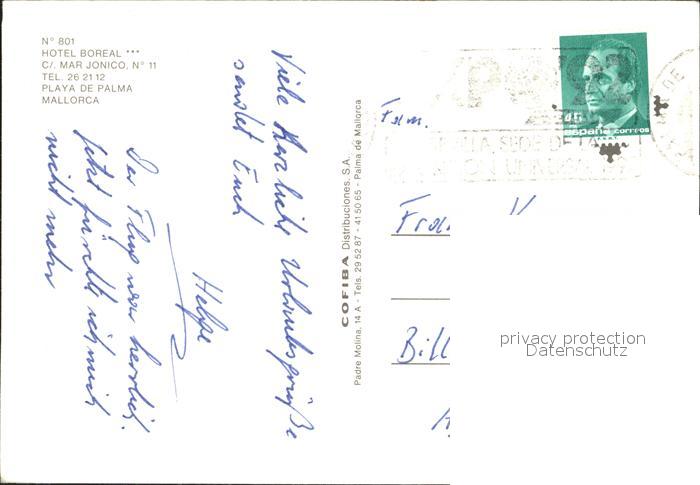 Nº 801
HOTEL BOREAL ***
C/. MAR JONICO, Nº 11
TEL. 26 21 12
PLAYA DE PALMA
MALLORCA
Viele herzliche Urlaubsgrüße
sendet Euch
Helge
Der Flug war herrlich.
Jetzt fürchte ich mich
nicht mehr
COFIBA Distribuciones, S.A.
Padre Molina, 14 A - Tels. 29 52 87 - 41 50 65 - Palma de Mallorca
Fam.
Bill
45
españa correos
privacy protection
Datenschutz